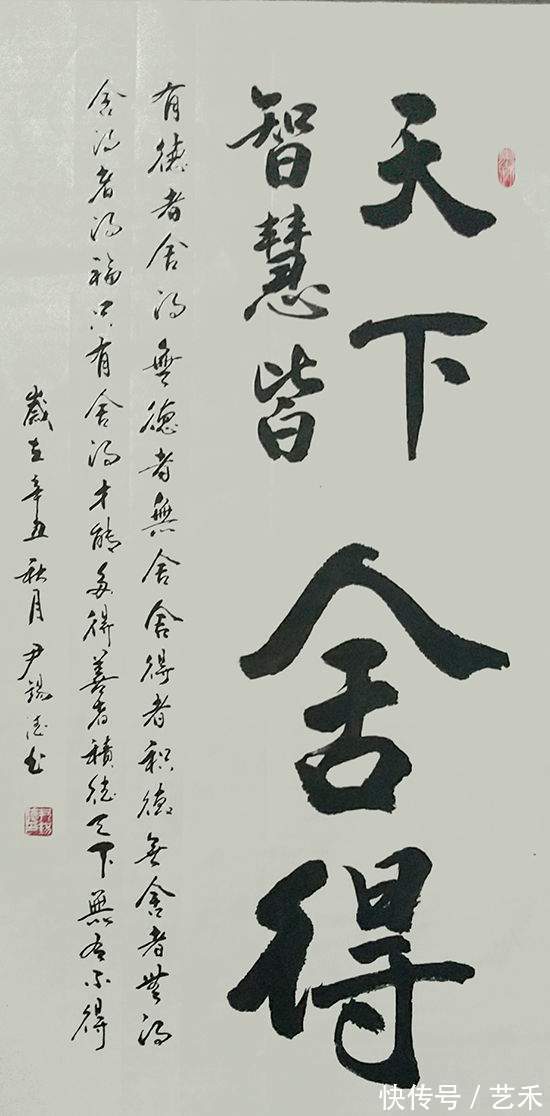 天下
智慧皆
舍得
有德者舍得無德者無舍舍得者积德无舍者無得
舍得者得福只有舍得才能多得善者積德天下無有不得
歲在辛丑秋月尹锡德书
快传号 / 艺禾